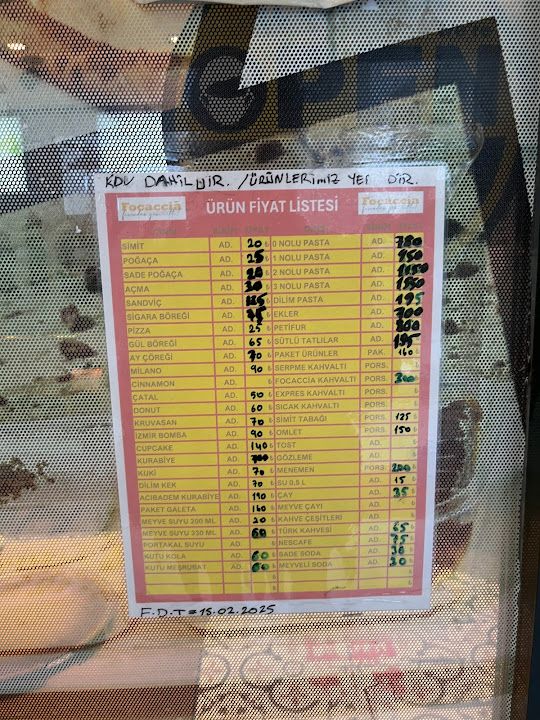 OPEN
KDV DAHİLDİR. /ÜRÜNLERİMİZ YERLİDİR.
Focaccia ÜRÜN FİYAT LİSTESİ
SİMİT AD. 20 ₺ 0 NOLU PASTA AD.
POĞAÇA AD. 25 ₺ 1 NOLU PASTA AD. 950
SADE POĞAÇA AD. ₺ 2 NOLU PASTA AD.
AÇMA AD. ₺ 3 NOLU PASTA AD.
SANDVİÇ AD. ₺ DİLİM PASTA AD. 195
SİGARA BÖREĞİ AD. ₺ EKLER AD. 700
PİZZA AD. 25 ₺ PETİFUR AD. 800
GÜL BÖREĞİ AD. 65 ₺ SÜTLÜ TATLILAR AD. 195
AY ÇÖREĞİ AD. 70 ₺ PAKET ÜRÜNLER PAK. 160
MİLANO AD. 90 ₺ SERPME KAHVALTI PORS.
CINNAMON AD. ₺ FOCACCIA KAHVALTI PORS. 300
ÇATAL AD. 50 ₺ EXPRES KAHVALTI PORS.
DONUT AD. 60 ₺ SICAK KAHVALTI PORS.
KRUVASAN AD. 70 ₺ SİMİT TABAĞI PORS. 125
İZMİR BOMBA AD. 90 ₺ OMLET PORS. 150
CUPCAKE AD. 140 ₺ TOST AD.
KURABİYE AD. ₺ GÖZLEME AD.
KUKİ AD. 70 ₺ MENEMEN PORS. 200
DİLİM KEK AD. 70 ₺ SU 0,5 L AD. 15
ACIBADEM KURABİYE AD. 190 ₺ ÇAY AD. 35
PAKET GALETA AD. 160 ₺ MEYVE ÇAYI AD.
MEYVE SUYU 200 ML. AD. 20 ₺ KAHVE ÇEŞİTLERİ AD.
MEYVE SUYU 330 ML. AD. 60 ₺ TÜRK KAHVESİ AD. 65
PORTAKAL SUYU AD. ₺ NESCAFE AD. 75
KUTU KOLA AD. 60 ₺ SADE SODA AD. 30
KUTU MEŞRUBAT AD. 60 ₺ MEYVELİ SODA AD. 30
F.D.T=15.02.2025